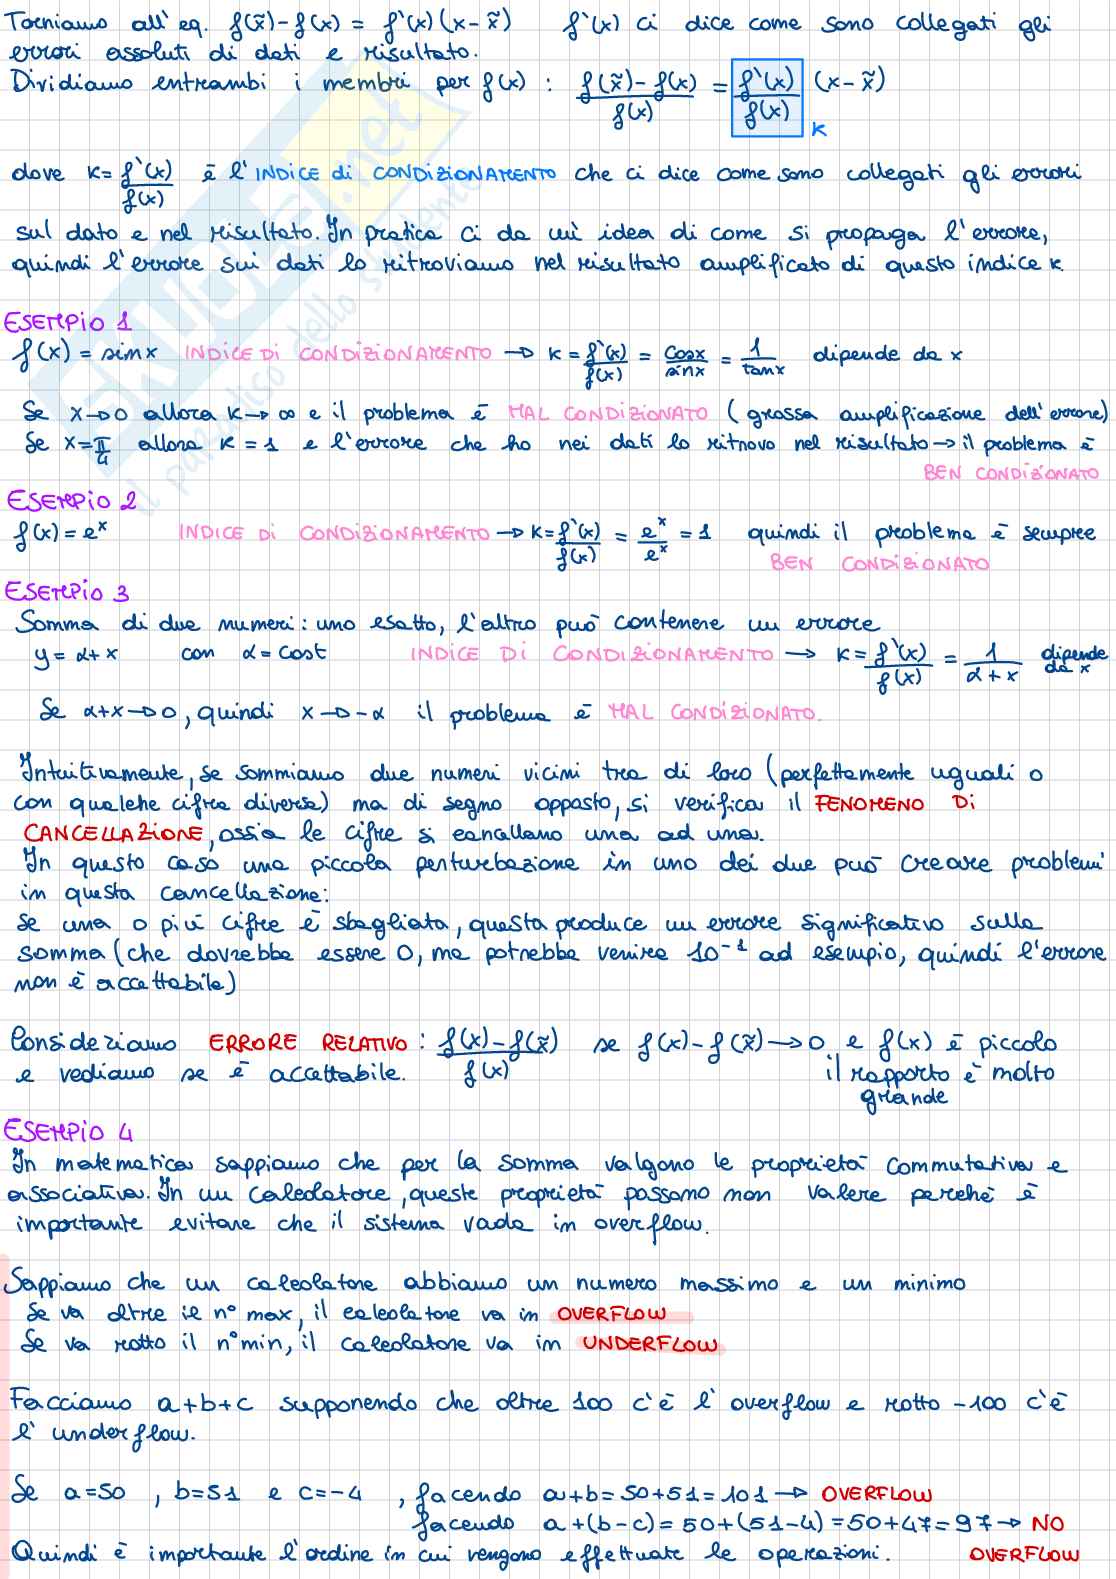 Torniamo all' eq. f(x̃)-f(x) = f'(x)(x-x̃) f'(x) ci dice come sono collegati gli
errori assoluti di dati e risultato.
Dividiamo entrambi i membri per f(x) : (f(x̃)-f(x))/f(x) = f'(x)/f(x) (x-x̃)
K
dove K = f'(x)/f(x) è l'INDICE di CONDIZIONAMENTO che ci dice come sono collegati gli errori
sul dato e nel risultato. In pratica ci da un' idea di come si propaga l'errore,
quindi l'errore sui dati lo ritroviamo nel risultato amplificato di questo indice K.
ESEMPIO 1
f(x) = sinx INDICE DI CONDIZIONAMENTO → K = f'(x)/f(x) = cosx/sinx = 1/tanx dipende da x
Se x→0 allora K→∞ e il problema è MAL CONDIZIONATO (grossa amplificazione dell'errore)
Se x=π/4 allora K = 1 e l'errore che ho nei dati lo ritnovo nel risultato → il problema è
BEN CONDIZIONATO
ESEMPIO 2
f(x) = eˣ INDICE DI CONDIZIONAMENTO → K = f'(x)/f(x) = eˣ/eˣ = 1 quindi il problema è sempre
BEN CONDIZIONATO
ESEMPIO 3
Somma di due numeri: uno esatto, l'altro può contenere un errore
y = α+x con α = cost INDICE DI CONDIZIONAMENTO → K = f'(x)/f(x) = 1/(α+x) dipende da x
Se α+x→0, quindi x→-α il problema è MAL CONDIZIONATO.
Intuitivamente, se sommiamo due numeri vicini tra di loro (perfettamente uguali o
con qualche cifra diversa) ma di segno opposto, si verifica il FENOMENO DI
CANCELLAZIONE, ossia le cifre si cancellano una ad una.
In questo caso una piccola perturbazione in uno dei due può creare problemi
in questa cancellazione:
se una o più cifre è sbagliata, questa produce un errore significativo sulla
somma (che dovrebbe essere 0, ma potrebbe venire 10⁻¹ ad esempio, quindi l'errore
non è accettabile)
Consideriamo ERRORE RELATIVO : (f(x)-f(x̃))/f(x) se f(x)-f(x̃)→0 e f(x) è piccolo
e vediamo se è accettabile. il rapporto è molto
grande
ESEMPIO 4
In matematica sappiamo che per la somma valgono le proprietà commutativa e
associativa. In un calcolatore, queste proprietà possono non valere perché è
importante evitare che il sistema vada in overflow.
Sappiamo che un calcolatore abbiamo un numero massimo e un minimo
Se va oltre il n° max, il calcolatore va in OVERFLOW
Se va sotto il n° min, il calcolatore va in UNDERFLOW
Facciamo a+b+c supponendo che oltre 100 c'è l'overflow e sotto -100 c'è
l'underflow.
Se a=50 , b=51 e c=-4 , facendo a+b = 50+51 = 101 → OVERFLOW
facendo a+(b-c) = 50+(51-4) = 50+47 = 97 → NO
Quindi è importante l'ordine in cui vengono effettuate le operazioni. OVERFLOW
SKUOLA.net
il paradiso dello studente